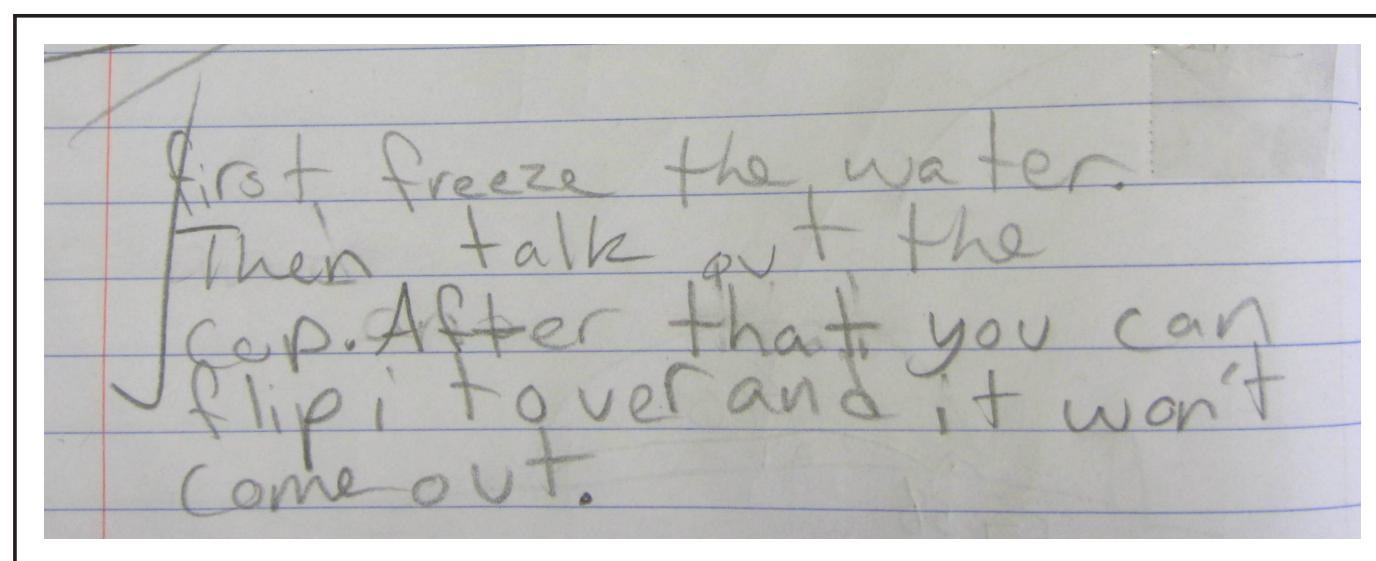 first, freeze the water.
Then talk out the
cup. After that, you can
flip it over and it won't
come out.